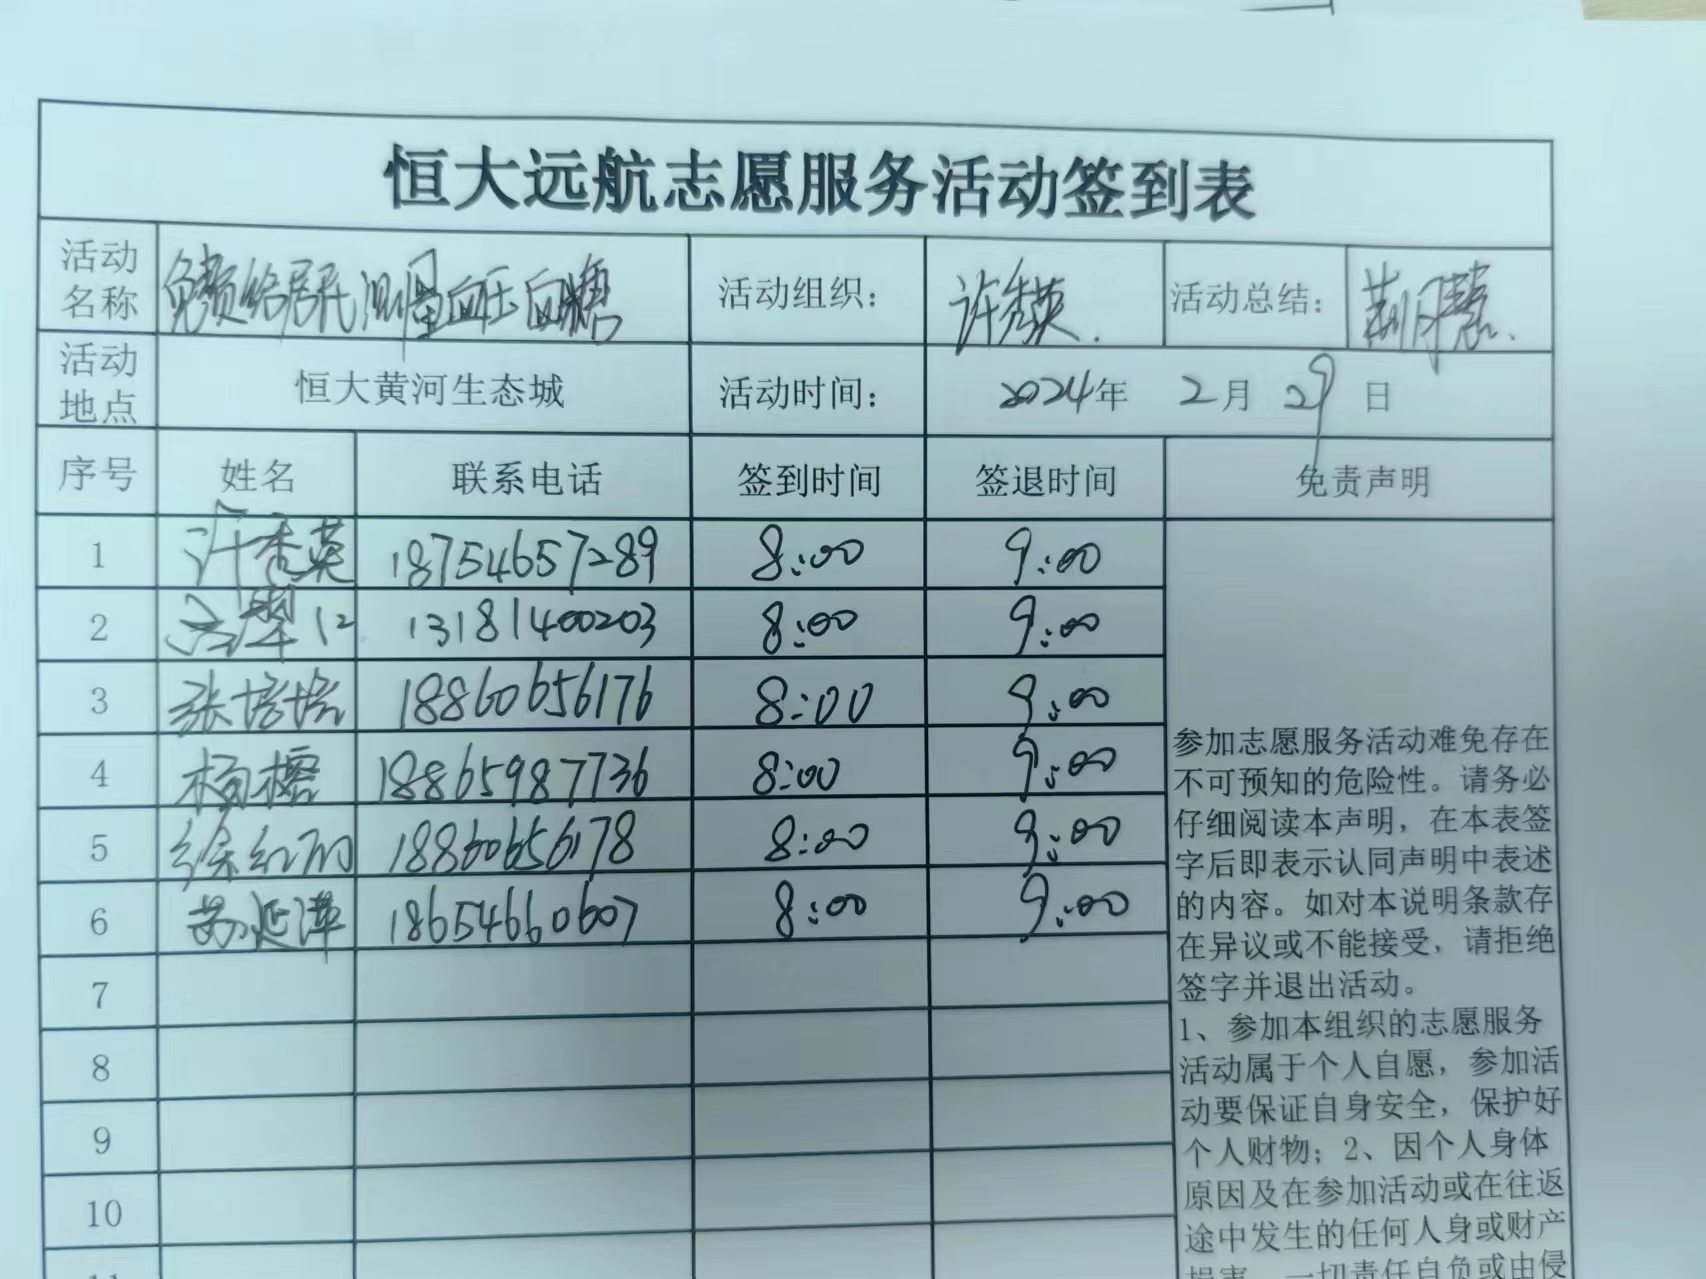 恒大远航志愿服务活动签到表
活动名称 免费给居民测量血压血糖 活动组织： 许秀英. 活动总结： 荆月慧.
活动地点 恒大黄河生态城 活动时间： 2024年 2月 29日
序号 姓名 联系电话 签到时间 签退时间 免责声明
1 许秀英 18754657289 8:00 9:00
2 13181400203 8:00 9:00
3 张培培 18860656176 8:00 9:00
4 杨榕 18865987736 8:00 9:00
5 徐红丽 18860656178 8:00 9:00
6 苏延萍 18654660607 8:00 9:00
7
8
9
10
11
参加志愿服务活动难免存在
不可预知的危险性。请务必
仔细阅读本声明，在本表签
字后即表示认同声明中表述
的内容。如对本说明条款存
在异议或不能接受，请拒绝
签字并退出活动。
1、参加本组织的志愿服务
活动属于个人自愿，参加活
动要保证自身安全，保护好
个人财物；2、因个人身体
原因及在参加活动或在往返
途中发生的任何人身或财产
损害，一切责任自负或由侵